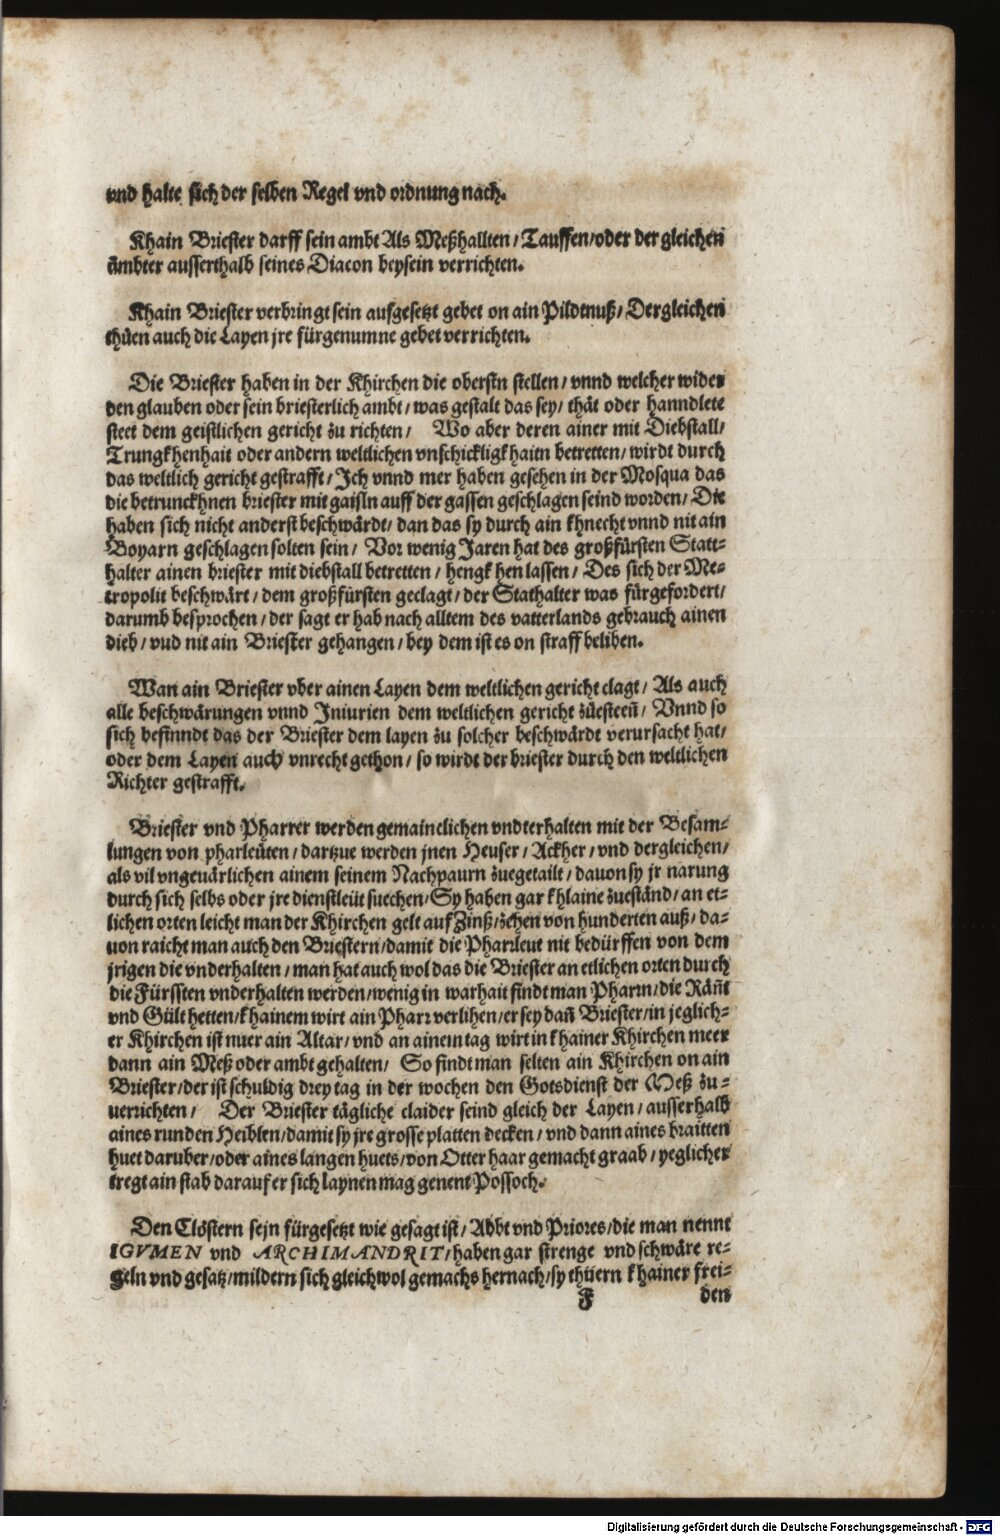 vnd halte sich der selben Regel vnd ordnung nach.
Khain Briester darff sein ambt Als Meßhallten / Tauffen / oder der gleichen
ämbter ausserthalb seines Diacon beysein verrichten.
Khain Briester verbringt sein aufgesetzt gebet on ain Pildtnuß / Dergleichen
thüen auch die Layen jre fürgenumne gebet verrichten.
Die Briester haben in der Khirchen die oberstn stellen / vnnd welcher wider
den glauben oder sein briesterlich ambt / was gestalt das sey / thät oder hanndlete
steet dem geistlichen gericht zu richten / Wo aber deren ainer mit Diebstall /
Trungkhenhait oder andern weltlichen vnschickligkhaitn betretten / wirdt durch
das weltlich gericht gestrafft / Ich vnnd mer haben gesehen in der Mosqua das
die betrunckhnen briester mit gaisln auff der gassen geschlagen seind worden / Die
haben sich nicht anderst beschwärdt / dan das sy durch ain khnecht vnnd nit ain
Boyarn geschlagen solten sein / Vor wenig Jaren hat des großfürsten Statt-
halter ainen briester mit diebstall betretten / hengkhen lassen / Des sich der Me-
tropolit beschwärt / dem großfürsten geclagt / der Stathalter was fürgefordert /
darumb besprochen / der sagt er hab nach alltem des vatterlands gebrauch ainen
dieb / vud nit ain Briester gehangen / bey dem ist es on straff beliben.
Wan ain Briester vber ainen Layen dem weltlichen gericht clagt / Als auch
alle beschwärungen vnnd Iniurien dem weltlichen gericht züesteen̄ / Vnnd so
sich befinndt das der Briester dem layen zu solcher beschwärdt verursacht hat /
oder dem Layen auch vnrecht gethon / so wirdt der briester durch den weltlichen
Richter gestrafft.
Briester vnd Pharrer werden gemainclichen vndterhalten mit der Besam-
lungen von pharleüten / dartzue werden jnen Heuser / Ackher / vnd dergleichen /
als vil vngeuärlichen ainem seinem Nachpaurn zuegetailt / dauon sy jr narung
durch sich selbs oder jre dienstleüt suechen / Sy haben gar khlaine zueständ / an et-
lichen orten leicht man der Khirchen gelt auf Zinß / zehen von hunderten auß / da-
uon raicht man auch den Briestern / damit die Pharrleut nit bedürffen von dem
jrigen die vnderhalten / man hat auch wol das die Briester an etlichen orten durch
die Fürssten vnderhalten werden / wenig in warhait findt man Pharrn / die Rän̄t
vnd Gült hetten / khainem wirt ain Pharr verlihen / er sey dan̄ Briester / in jeglich-
er Khirchen ist nuer ain Altar / vnd an ainem tag wirt in khainer Khirchen meer
dann ain Meß oder ambt gehalten / So findt man selten ain Khirchen on ain
Briester / der ist schuldig drey tag in der wochen den Gotsdienst der Meß zu-
uerrichten / Der Briester tägliche claider seind gleich der Layen / ausserhalb
aines runden Heiblen / damit sy jre grosse platten decken / vnd dann aines braitten
huet daruber / oder aines langen huets / von Otter haar gemacht graab / yeglicher
tregt ain stab darauf er sich laynen mag genent Possoch.
Den Clöstern sejn fürgesetzt wie gesagt ist / Abbt vnd Priores / die man nennt
IGVMEN vnd ARCHIMANDRIT / haben gar strenge vnd schwäre re-
geln vnd gesatz / mildern sich gleichwol gemachs hernach / sy thüern khainer frei-
F den
Digitalisierung gefördert durch die Deutsche Forschungsgemeinschaft - DFG